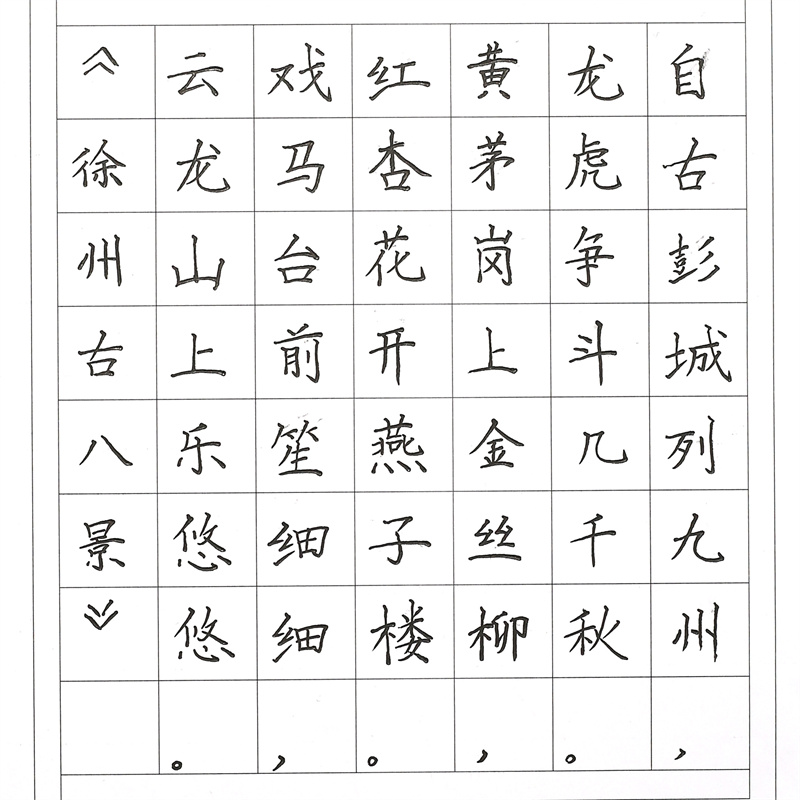 自古彭城列九州，
龙虎争斗几千秋。
黄茅岗上金丝柳，
红杏花开燕子楼。
戏马台前笙细细，
云龙山上乐悠悠。
《徐州古八景》